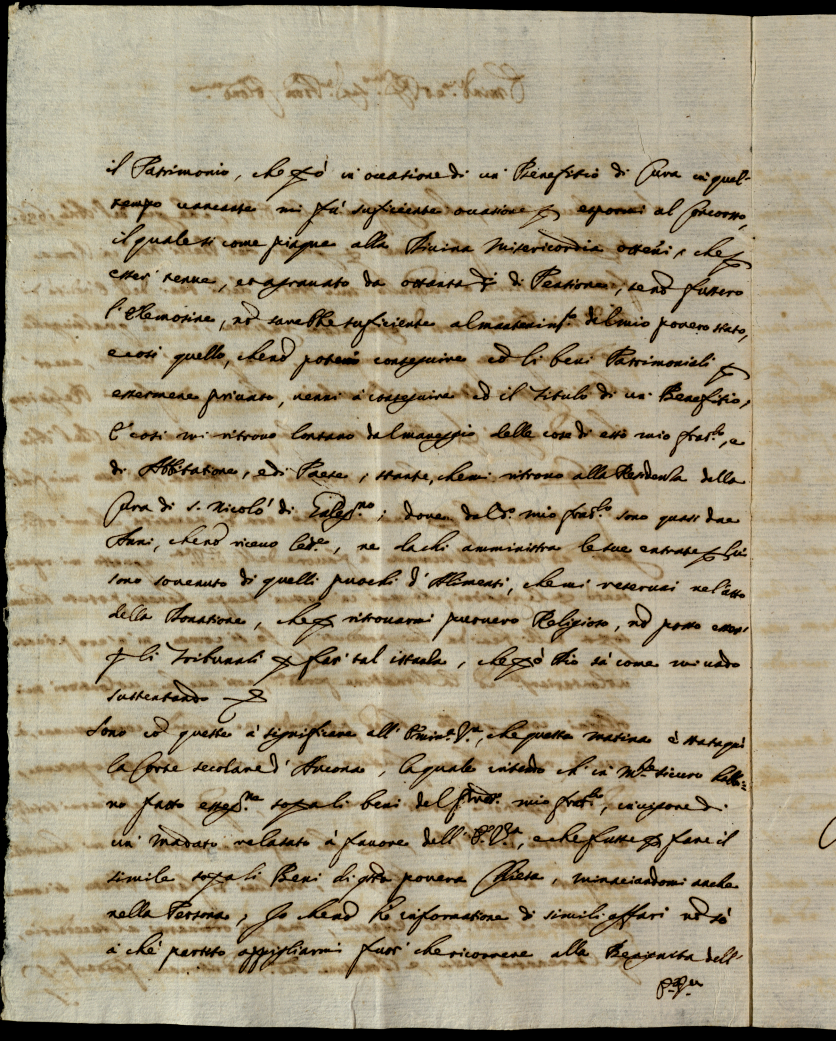 il Patrimonio, che però in occasione di un' Benefitio di Cura in quel-
tempo vacante mi fù suficiente occasione per espormi al Concorso,
il quale si come piaque alla Divina Misericordia ottenni, e che per
esser' tenue, et agravato da ottanta di Pensione, se nō fussero
l'Elemosine, nō sarebbe suficiente al mantenim.to del mio povero stato,
e così quello, che nō potevo conseguire cō li beni Patrimoniali per
essermene privato, venni à conseguire cō il Titulo di un' Benefitio,
E così mi ritrovo lontano dal maneggio delle cose di esso mio frat.lo, e
di Abbitatione, e di Paese, stante, che mi ritrovo alla Residenza della
Cura di S. Nicolò di ; dove dal d.o mio frat.lo sono quasi due
Anni, che nō ricevo, ne da chi amministra le sue entrate per lui
sono sovenuto di quelli puochi d'Alimenti, che mi reservai nel'atto
della Donatione, che per ritrovarmi puovero Religioso, nō posso esser'
per li Tribunali per far' tal istanza, che però Dio sà come mi vado
sustentando
Sono cō queste à significare all' Emin.a V.ra, che questa matina è stata quì
la Corte secolare d'Ancona, la quale intendo ch' in sicuro habbi-
no fatto sopra li beni del mio frat.lo, in vigore di
un' mādato relasato à favore dell' E.V.ra, e che fusse per fare il
simile sopra li Beni di q.ta povera Chiesa, minaciandomi anche
nella Persona, Io che nō hò informatione di simili affari nō sò
à chè partito appigliarmi fuor' che ricorrere alla Benignità dell'